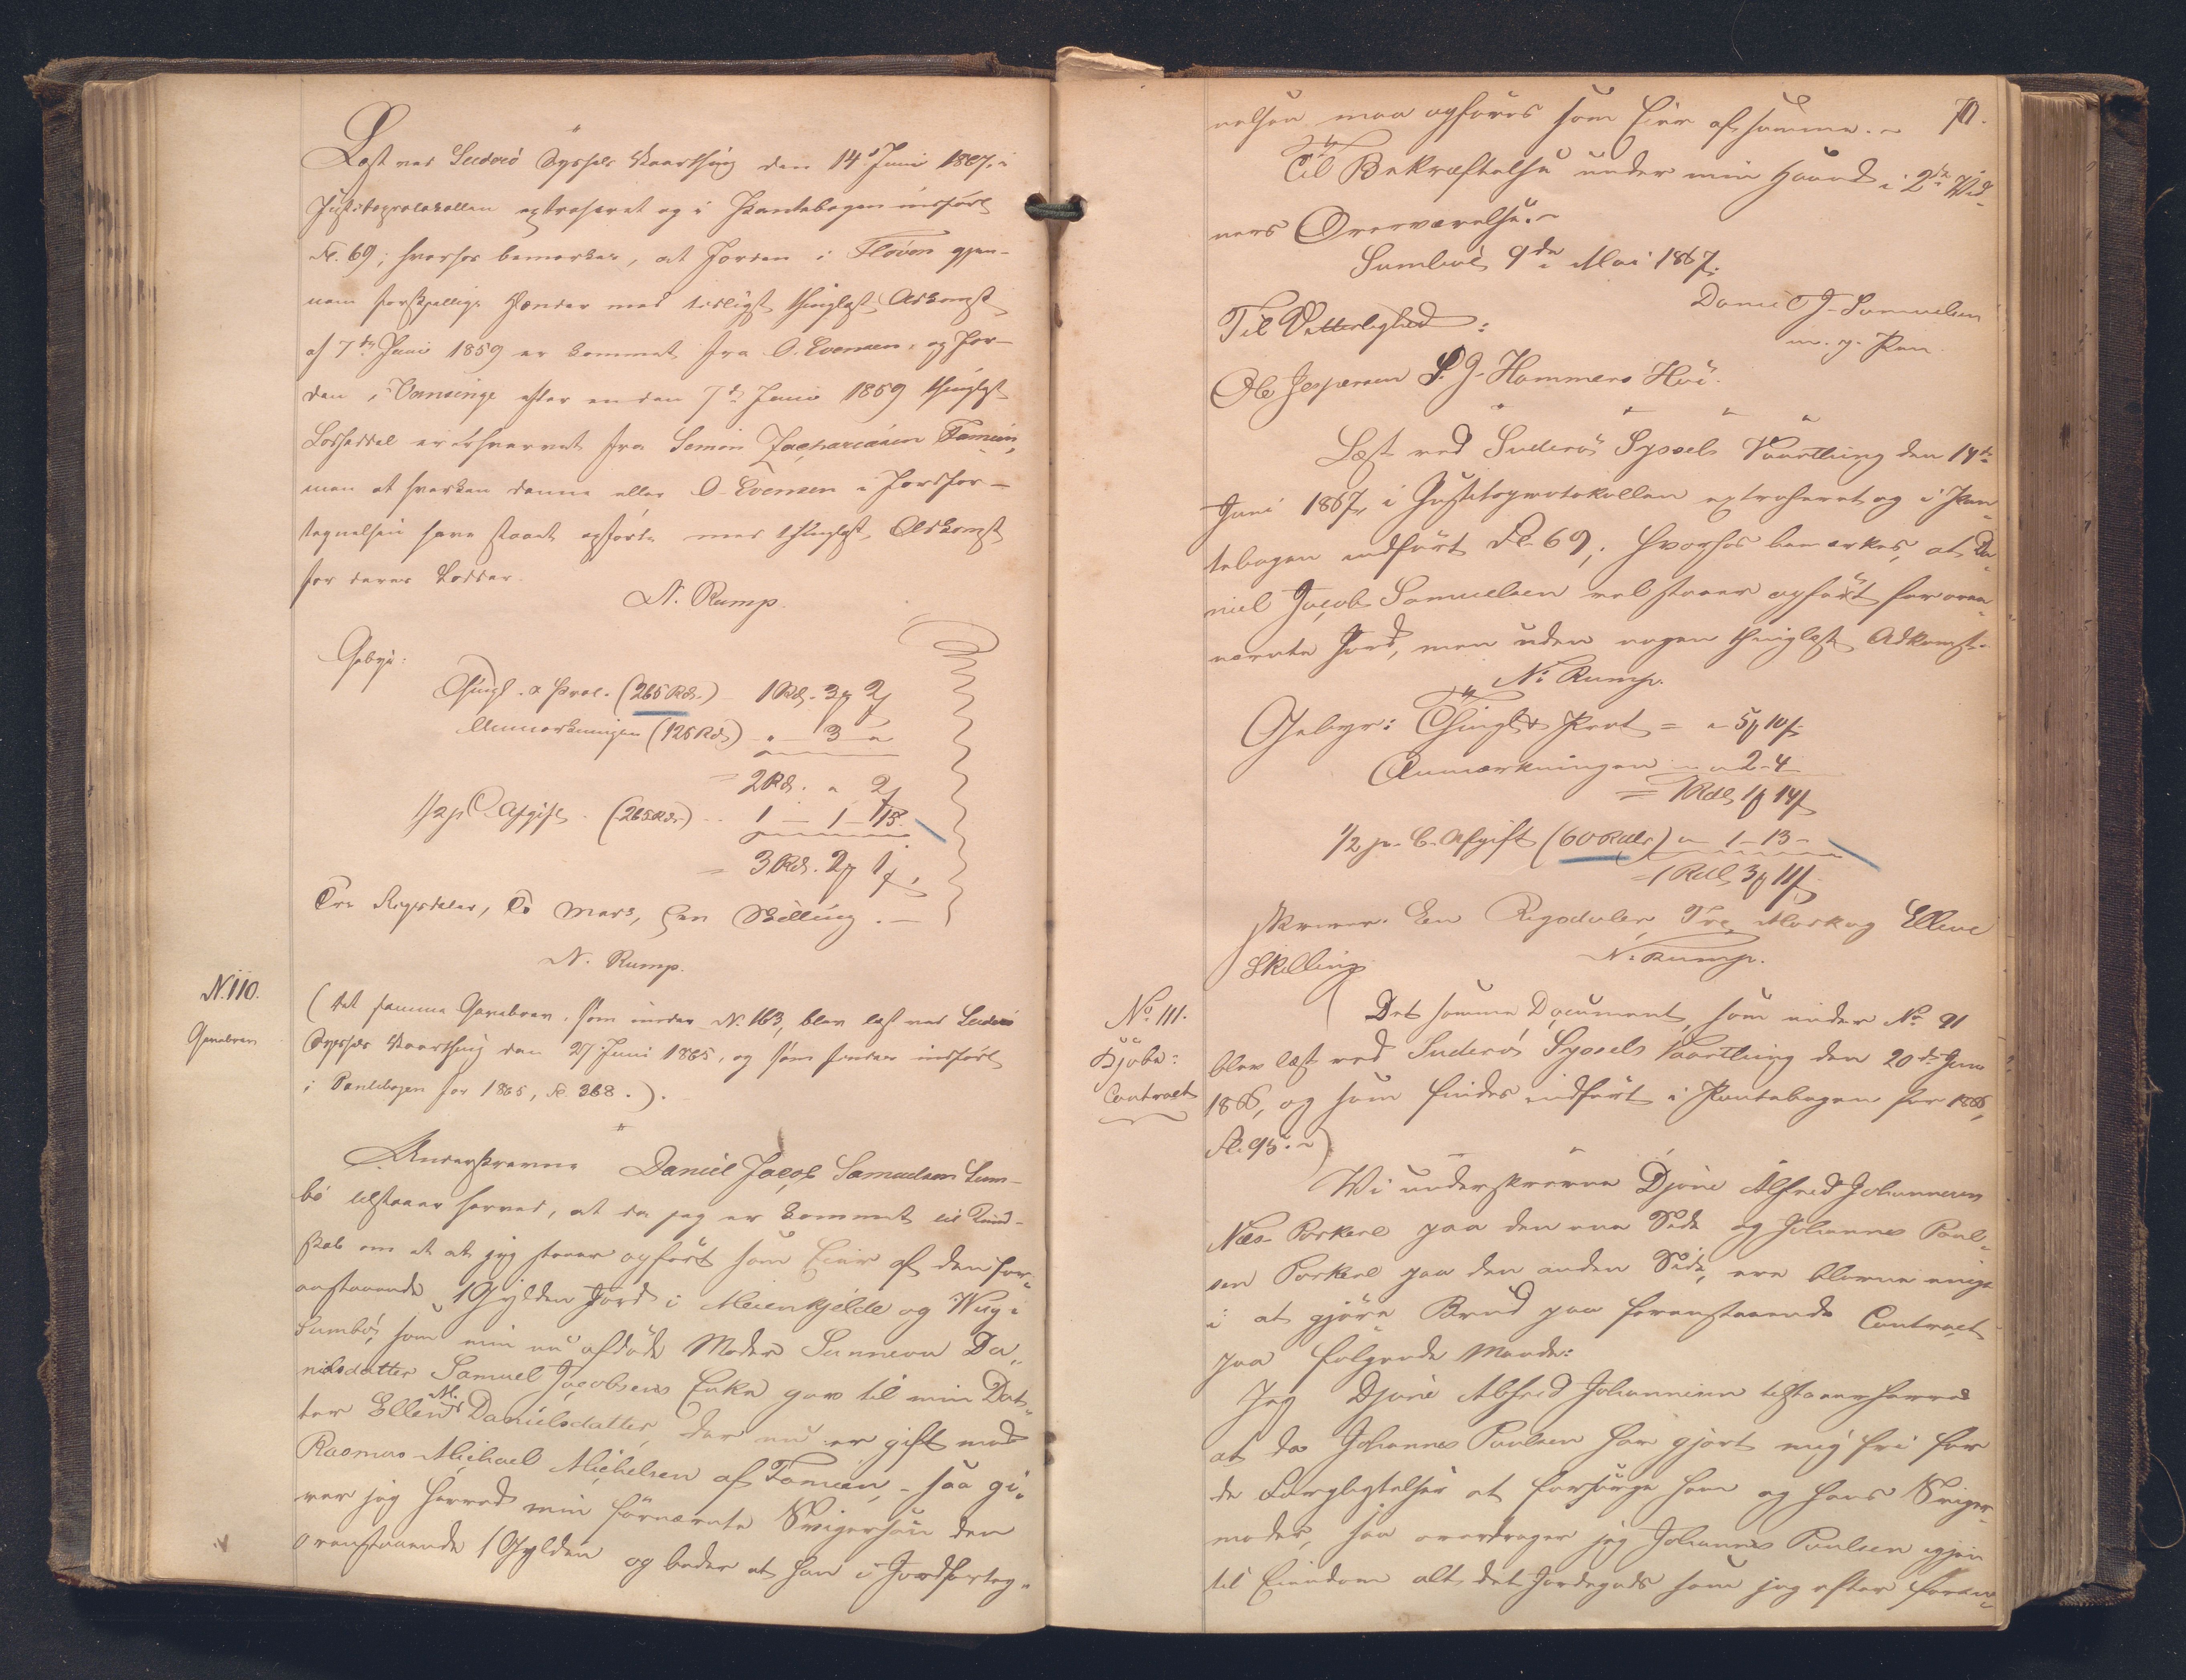 Læst ved Suderö Syssels Vaarthing den 14de Juni 1867, i
Justitsprotokollen extraheret og i Pantebogen indført
Fl. 69; hvorhos bemærkes, at Jorden i Fløven gjen-
nem forskjellige Hænder med tidligst thinglæst Adkomst
af 7de Juni 1859 er kommet fra O. Evensen, og Jor-
den i Vamvinge efter en den 7de Juni 1859 thinglæst
Lodseddel er erhvervet fra Semin Zachariasen Famien,
men at hverken denne eller O. Evensen i Jordfor-
tegnelsen have staaet opført med thinglæst Adkomst
for deres Lodder.
N. Rump.
Gebyr:
Thingl. & Prot. (265 Rd.) 1 Rd. 3 2
Anmærkningen (126 Rd) " 3 "
= 2 Rd. " 2
1/2 p C Afgift. (265 Rd.) 1 – 1 – 15
= 3 Rd. 2 1
Tre Rigsdaler, To Mark, Een Skilling.
N. Rump.
N. 110.
Gavebrev
(Det samme Gavebrev, som under N. 163, blev læst ved Suderö
Syssels Vaarthing den 27 Juni 1865, og som findes indført
i Pantebogen for 1865, Fl. 368.).
Underskrevne Daniel Jacob Samuelsen Sum-
bö tilstaaer herved, at da jeg er kommet til Kund-
skab om at at jeg staaer opført som Eier af den for-
anstaaende 1 Gylden Jord i Meienkjelde og Wug i
Sumbö, som min nu afdøde Moder Sunneva Da-
nielsdatter Samuel Jacobsens Enke gav til min Dat-
ter Ellen M. Danielsdatter, der nu er gift med
Rasmus Michael Michelsen af Famien, – saa gi-
ver jeg herved min førnævnte Svigersøn den
ovenstaaende 1 Gylden og beder at han i Jordforteg-
70.
nelsen maa opføres som Eier af samme. –
Til Bekræftelse under min Haand i 2de Vid-
ners Overværelse. –
Sumbö 9de Mai 1867.
Daniel J. Samuelsen
m. f. Pen
Til Vitterlighed:
Ole Jespersen P. J. Hammers Hvi.
Læst ved Suderö Syssels Vaarthing den 14de
Juni 1867, i Justitsprotokollen extraheret og i Pan-
tebogen indført Fl. 69; hvorhos bemærkes, at Da-
niel Jacob Samuelsen vel staaer opført for oven-
nævnte Jord, men uden nogen thinglæst Adkomst.
N. Rump.
Gebyr: Thingl & Prot = " 5 10
Anmærkningen " 2 – 4 –
= 1 Rdl 1 14
1/2 p. C. Afgift (60 Rdlr) " 1 – 13 –
= 1 Rdl 3 11
skriver. Een Rigsdaler, Tre Mark og Elleve
Skilling.
N. Rump.
No 111.
Kjøbe-
Contract
(Det samme Document, som under No 91
blev læst ved Suderö Syssels Vaarthing den 20de Juni
1866, og som findes indført i Pantebogen for 1866,
Fl. 95. –)
Wi underskrevne Djone Alfred Johannesen
Næs Porkere paa den ene Side og Johannes Poul-
sen Porkere paa den anden Side, ere blevne enige
i at gjøre Brud paa foranstaaende Contract
paa følgende Maade:
Jeg Djone Alfred Johannesen tilstaaer herved
at da Johannes Poulsen har gjort mig fri for
de Forpligtelser at forsørge ham og hans Sviger-
moder, saa overdrager jeg Johannes Poulsen igjen
til Eiendom alt det Jordegods som jeg efter foran-